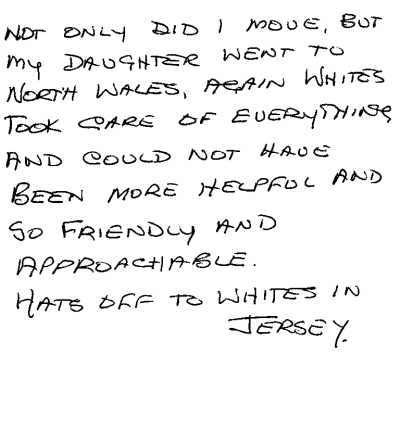 NOT ONLY DID I MOVE, BUT
MY DAUGHTER WENT TO
NORTH WALES, AGAIN WHITES
TOOK CARE OF EVERYTHING
AND COULD NOT HAVE
BEEN MORE HELPFUL AND
SO FRIENDLY AND
APPROACHABLE.
HATS OFF TO WHITES IN
JERSEY.